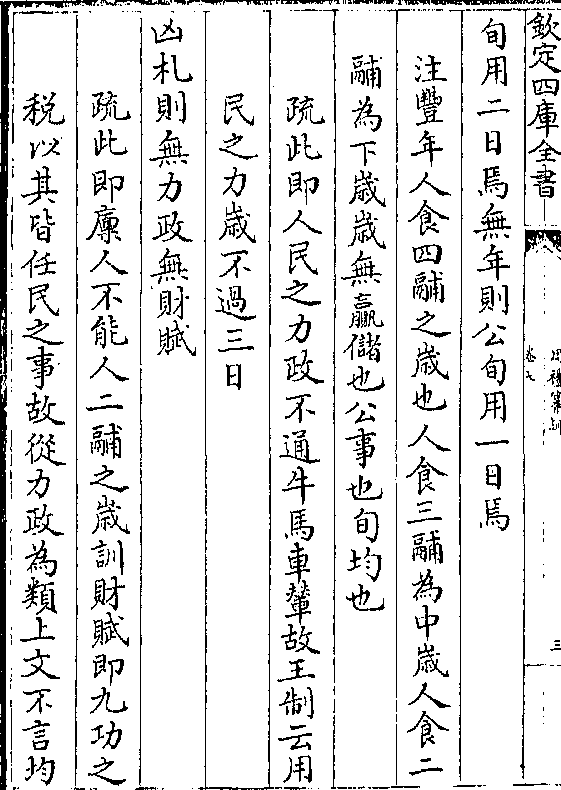 欽定四庫全書
周禮纂訓
卷七
三
旬用二日焉無年則公旬用一日焉
注豐年人食四鬴之歲也人食三鬴為中歲人食二
鬴為下歲歲無贏儲也公事也旬均也
疏此即人民之力政不通牛馬車輦故王制云用
民之力歲不過三日
凶札則無力政無財賦
疏此即廩人不能人二鬴之歲訓財賦即九功之
稅以其皆任民之事故從力政為類上文不言均